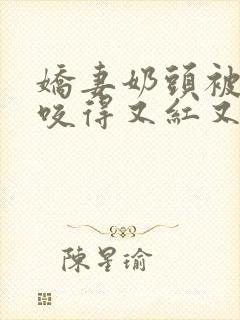 嬌妻奶頭被
咬得又紅又
陳星瑜